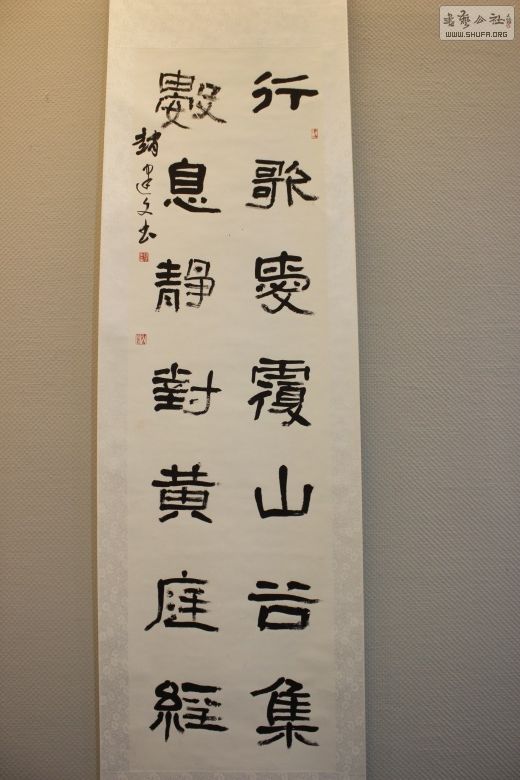 行歌愛覆山谷集
數息靜對黄庭經
趙建文书
書藝公社
WWW.SHUFA.ORG